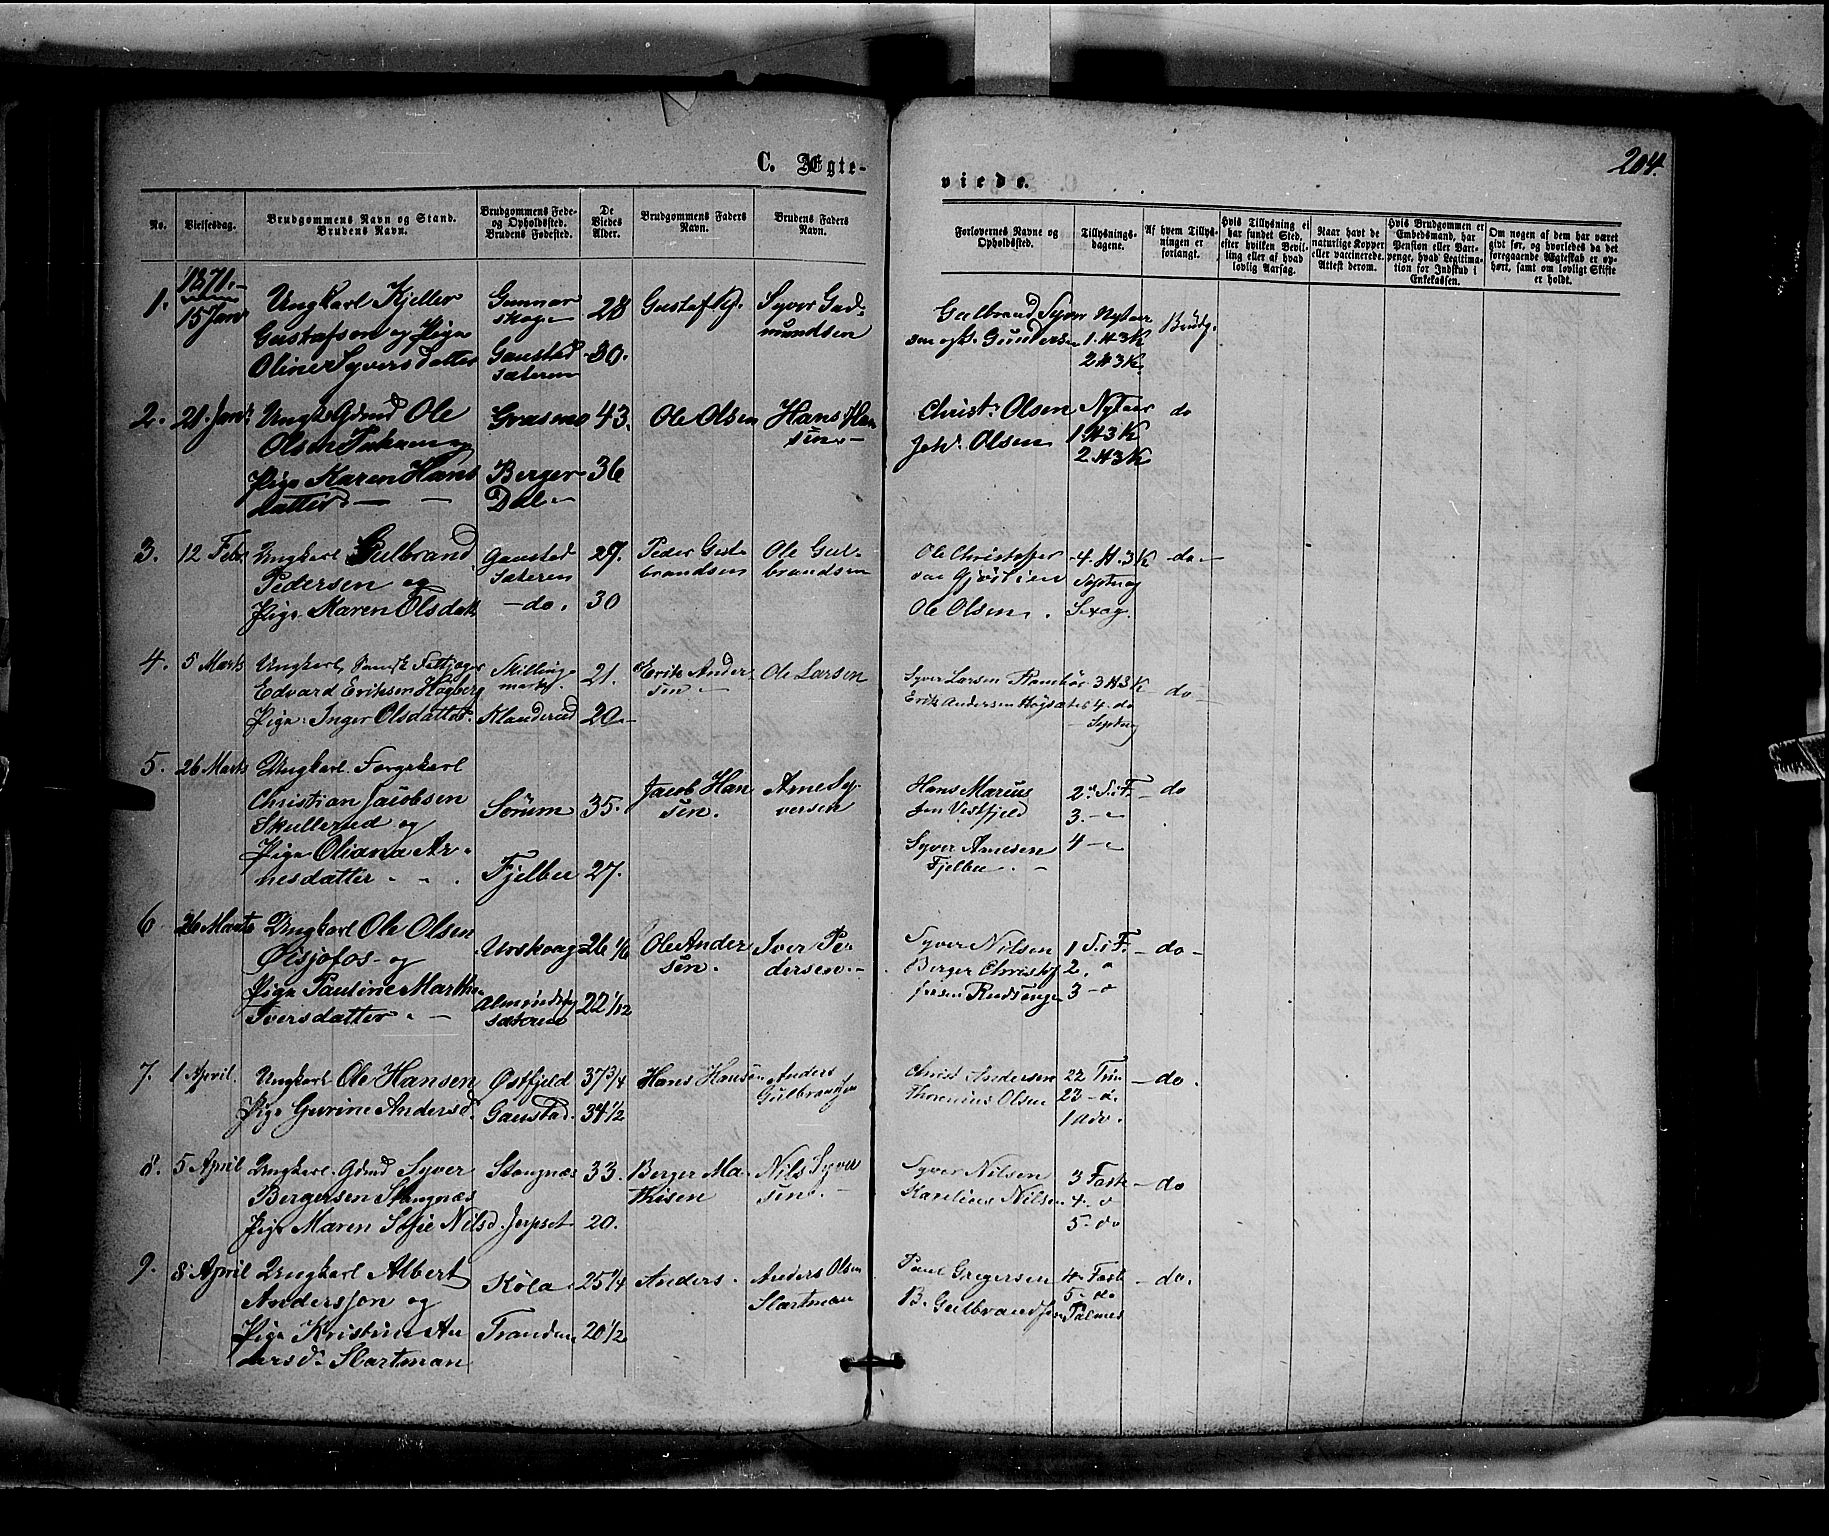 C. Ægte-
viede.
204.
No.
Vielsesdag.
Brudgommens Navn og Stand.
Brudens Navn.
Brudgommens Føde-
og Opholdssted.
Brudens Fødested.
De
Viedes
Alder.
Brudgommens Faders
Navn.
Brudens Faders
Navn.
Forlovernes Navne og
Opholdssted.
Tillysnings-
dagene.
Af hvem Tillys-
ningen er
forlangt.
Hvis Tillysning ei
har fundet Sted,
efter hvilken Bevil-
ling eller af hvad
lovlig Aarsag.
Naar havt de
naturlige Kopper
eller vaccinerede.
Attest derom.
Hvis Brudgommen er
Embedsmand, har
Pension eller Varte-
penge, hvad Legitima-
tion for Indskud i
Enkekassen.
Om nogen af dem har været
gift før, og hvorledes da det
foregaaende Ægteskab er op-
hørt, samt om lovligt Skifte
er holdt.
1871.
1. 15 Jan
Ungkarl Kjeller
Gustafsen og Pige
Oline Syversdatter
Gunnar
skog
Gaustad
sæteren
28
30.
Gustaf Kj.
Syver Gud-
mundsen
Gulbrand Syver
sen og Gundersen
Nytaar
1. H3K
2 H3K.
Brudg.
2. 21 Jan
Ungk Gdmd Ole
Olsen
Pige Karen Hans
datter
Græsmo
Berger-
Dal
43.
36
Ole Olsen
Hans Han
sen
Christ. Olsen
Joh. Olsen
Nytaar
1 H3K
2. H3K
do
3. 12 Febr
Ungkarl Gulbrand
Pedersen og
Pige Karen Olsdat
Gaustad
sæteren
do.
27.
30
Peder Gul-
brandsen
Ole Gul-
brandsen
Ole Christoffer
sen
Ole Olsen.
4. H. 3K
Septuag
Sexag.
do
4. 5 Marts
Ungkarl, Svensk
Edvard Eriksen Høgberg
Pige Inger Olsdatter
Skillings
mark
Klanderud
21.
20
Erik Ander
sen
Ole Larsen
Syver Larsen
Erik Andersen
3 H3K
4. do
Septuag
do
5. 26 Marts
Ungkarl
Christian Jacobsen
Skullerud og
Pige Oliana Ar-
nesdatter
Sørum
Fjelber
35.
27.
Jacob Han
sen.
Arne Sy-
versen
Hans Marius
Vestfjeld
Syver Arnesen
Fjelber
2. S.i F.
3.
4
do
6 26 Marts
Ungkarl Ole Olsen
Ølsjøfos og
Pige Pauline Marthe
Iversdatter
Urskoug
sæteren
26 1/6
22 1/12
Ole Ander
sen.
Iver Pe-
dersen
Syver Nilsen
Berger Christof
fersen Rudsenge
1 S.i F.
2.
3
do
7. 1 April.
Ungkarl Ole Hansen
Pige Gurine Andersd.
Østfjeld
Gaustad.
37 3/4
34 1/2
Hans Hansen
Anders
Gulbrandsen
Christ Andersen
Thorenius Olsen
22 Trin
23
1 Adv.
do.
8. 5 April
Ungkarl. Gdmd Syver
Bergersen Stangnæs
Pige Maren Sofie Nilsd.
Stangnæs
Jerpset
33.
20.
Berger Ma-
thisen
Nils Syver
sen.
Syver Nilsen
Karelius Nilsen
3 Faste
4.
5. do
do
9. 8 April
Ungkarl Albert
Andersson og
Pige Kristine An
dersd. Slartman
Køla
25 1/4
20 1/2
Anders
Anders Olsen
Slartman
Paul Gregersen
B. Gulbrandsen
4. Fast
5. do
Palmes
do.